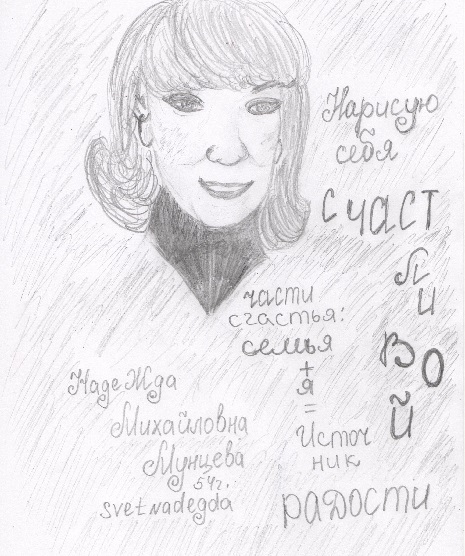 Нарисую
себя
СЧАСТ
ЛИ
ВО
Й
части
счастья:
семья
+
я
=
Источ
ник
радости
Надежда
Михайловна
Мунцева
54г.
svetnadegda